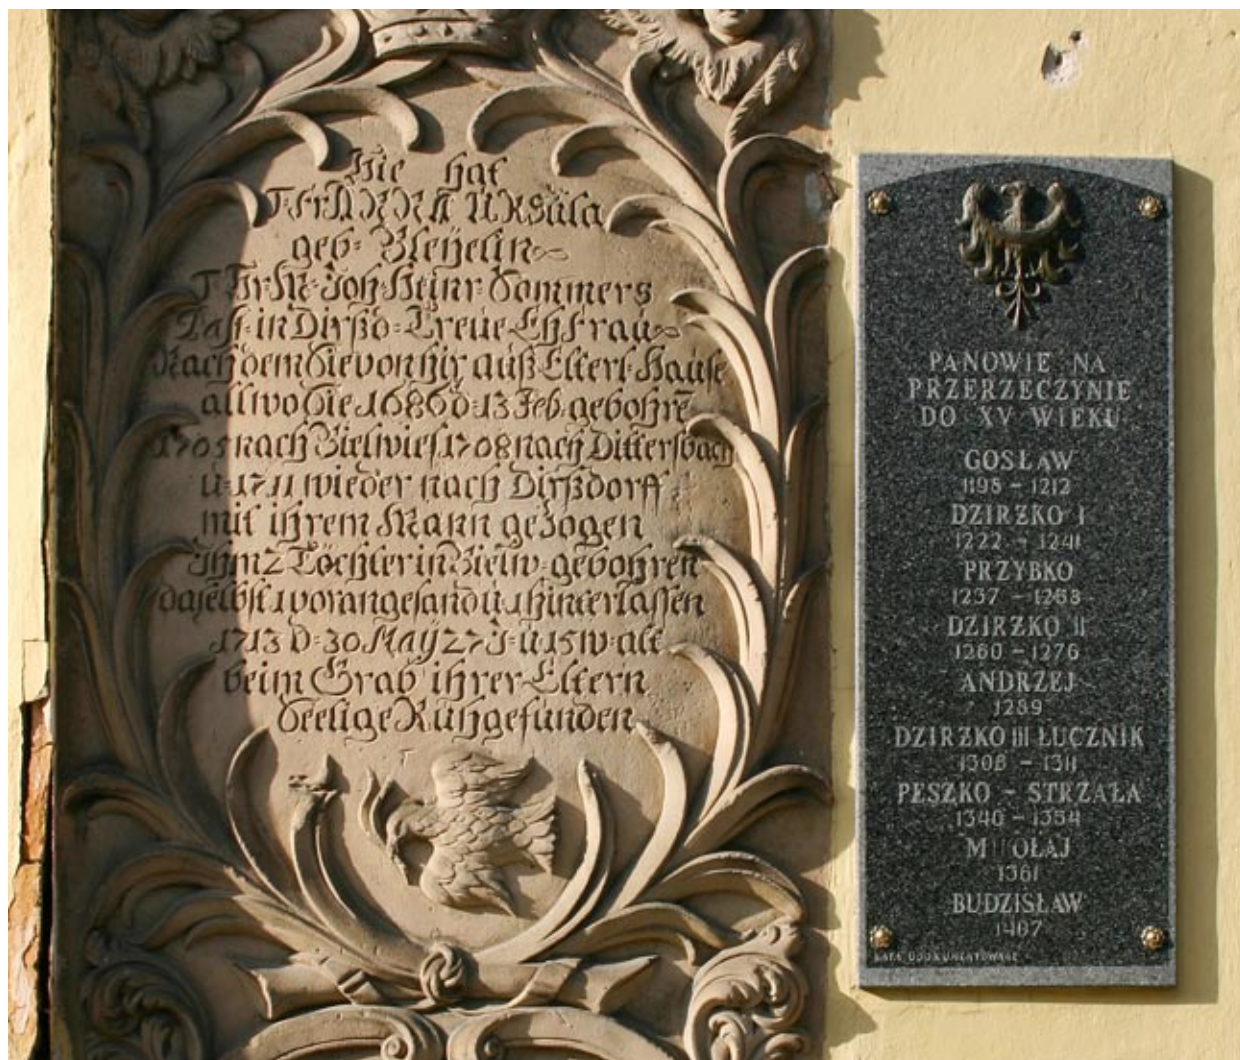 Hie hat
T. Fr. ANNA URSULA
geb: Bleÿelin
T. Hr: M: Joh: Heinr: Sommers
Past: in Dirßd: Treue Ehfrau
Nach dem Sie von hir auß Elterl: Hause
allwo Sie 1686 d: 13 Feb: gebohrē
1705 nach Bielwies. 1708 nach Dittersbach
u: 1711 wieder nach Dirßdorff
mit ihrem Mann gezogen
Ihm 2 Töchter in Bielw: gebohren
daselbst 1 vorangesand u: 1 hinterlassen
1713 d: 30 Maÿ 27 J: u 15 w: alt
beim Grab ihrer Eltern
Seelige Ruh gefunden
PANOWIE NA
PRZERZECZYNIE
DO XV WIEKU
GOSŁAW
1195 - 1212
DZIRŻKO I
1222 - 1241
PRZYBKO
1237 - 1258
DZIRŻKO II
1260 - 1276
ANDRZEJ
1289
DZIRŻKO III ŁUCZNIK
1308 - 1311
PESZKO - STRZAŁA
1340 - 1354
M OŁAJ
1361
BUDZISŁAW
1407
LATA UDOKUMENTOWANE